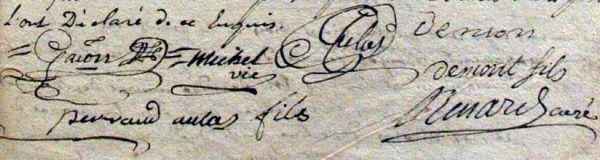 L'ont Déclaré de ce Enquis.
= Gaion = Michel Aulas demon
vie demont fils
perraud aulas fils Renard Curé